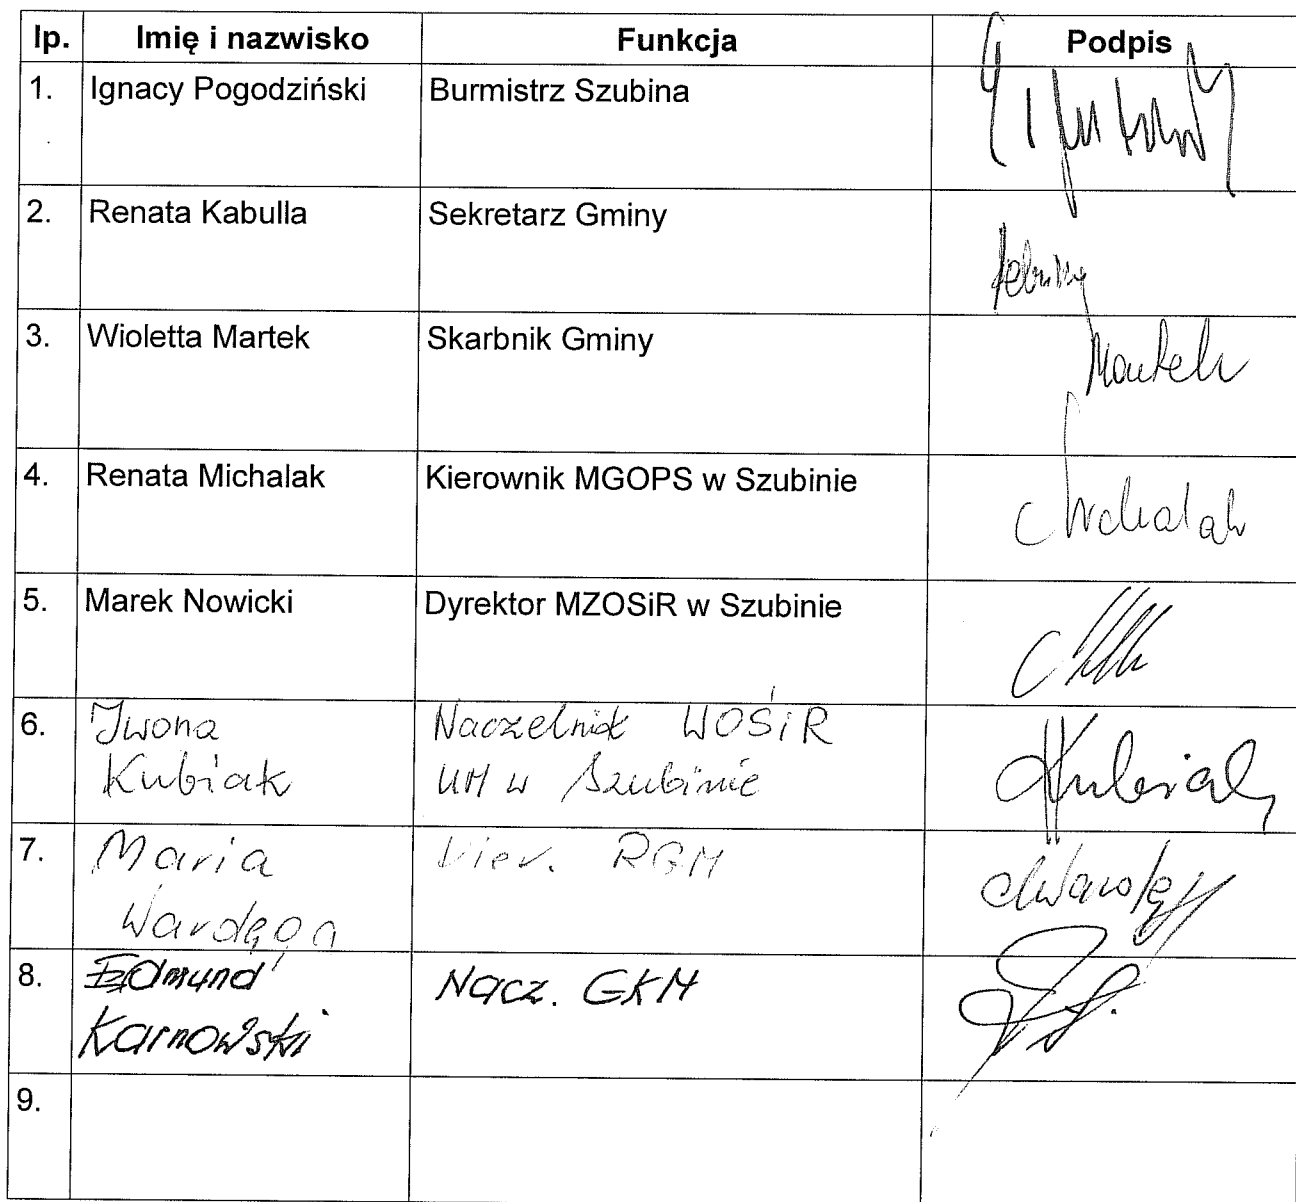 lp. Imię i nazwisko Funkcja Podpis
1. Ignacy Pogodziński Burmistrz Szubina
2. Renata Kabulla Sekretarz Gminy
3. Wioletta Martek Skarbnik Gminy Martek
4. Renata Michalak Kierownik MGOPS w Szubinie Michalak
5. Marek Nowicki Dyrektor MZOSiR w Szubinie
6. Iwona Naczelnik WOŚiR
Kubiak UM w Szubinie Kubiak
7. Maria Kier. RGM
Wardęga
8. Edmund Nacz. GKM
Karnowski
9.